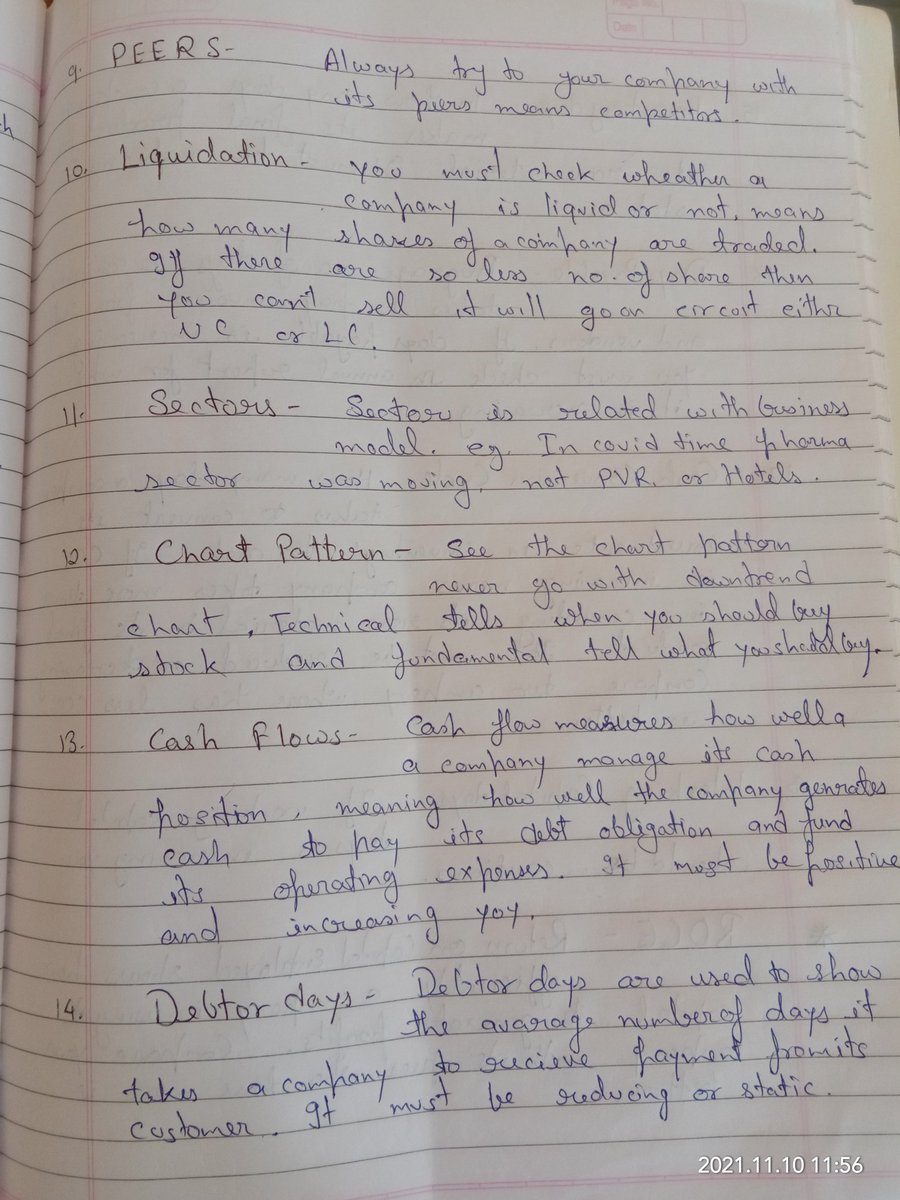 Page No.
Date
9. PEERS- Always try to your company with
its peers means competitors.
10. Liquidation - you must check wheather a
company is liquid or not, means
how many shares of a company are traded.
If there are so less no. of share then
you can't sell it will go on circuit either
UC or LC.
11. Sectors - Sectors is related with business
model. eg. In covid time pharma
sector was moving, not PVR. or Hotels.
12. Chart Pattern - See the chart pattern
never go with downtrend
chart, Technical tells when you should buy
stock and fundamental tell what you should buy.
13. Cash Flows- Cash flow measures how well a
a company manage its cash
position, meaning how well the company genrates
cash to pay its debt obligation and fund
its operating expenses. It must be positive
and increasing yoy.
14. Debtor days - Debtor days are used to show
the avarage number of days it
takes a company to recieve payment from its
customer. It must be reducing or static.
2021.11.10 11:56